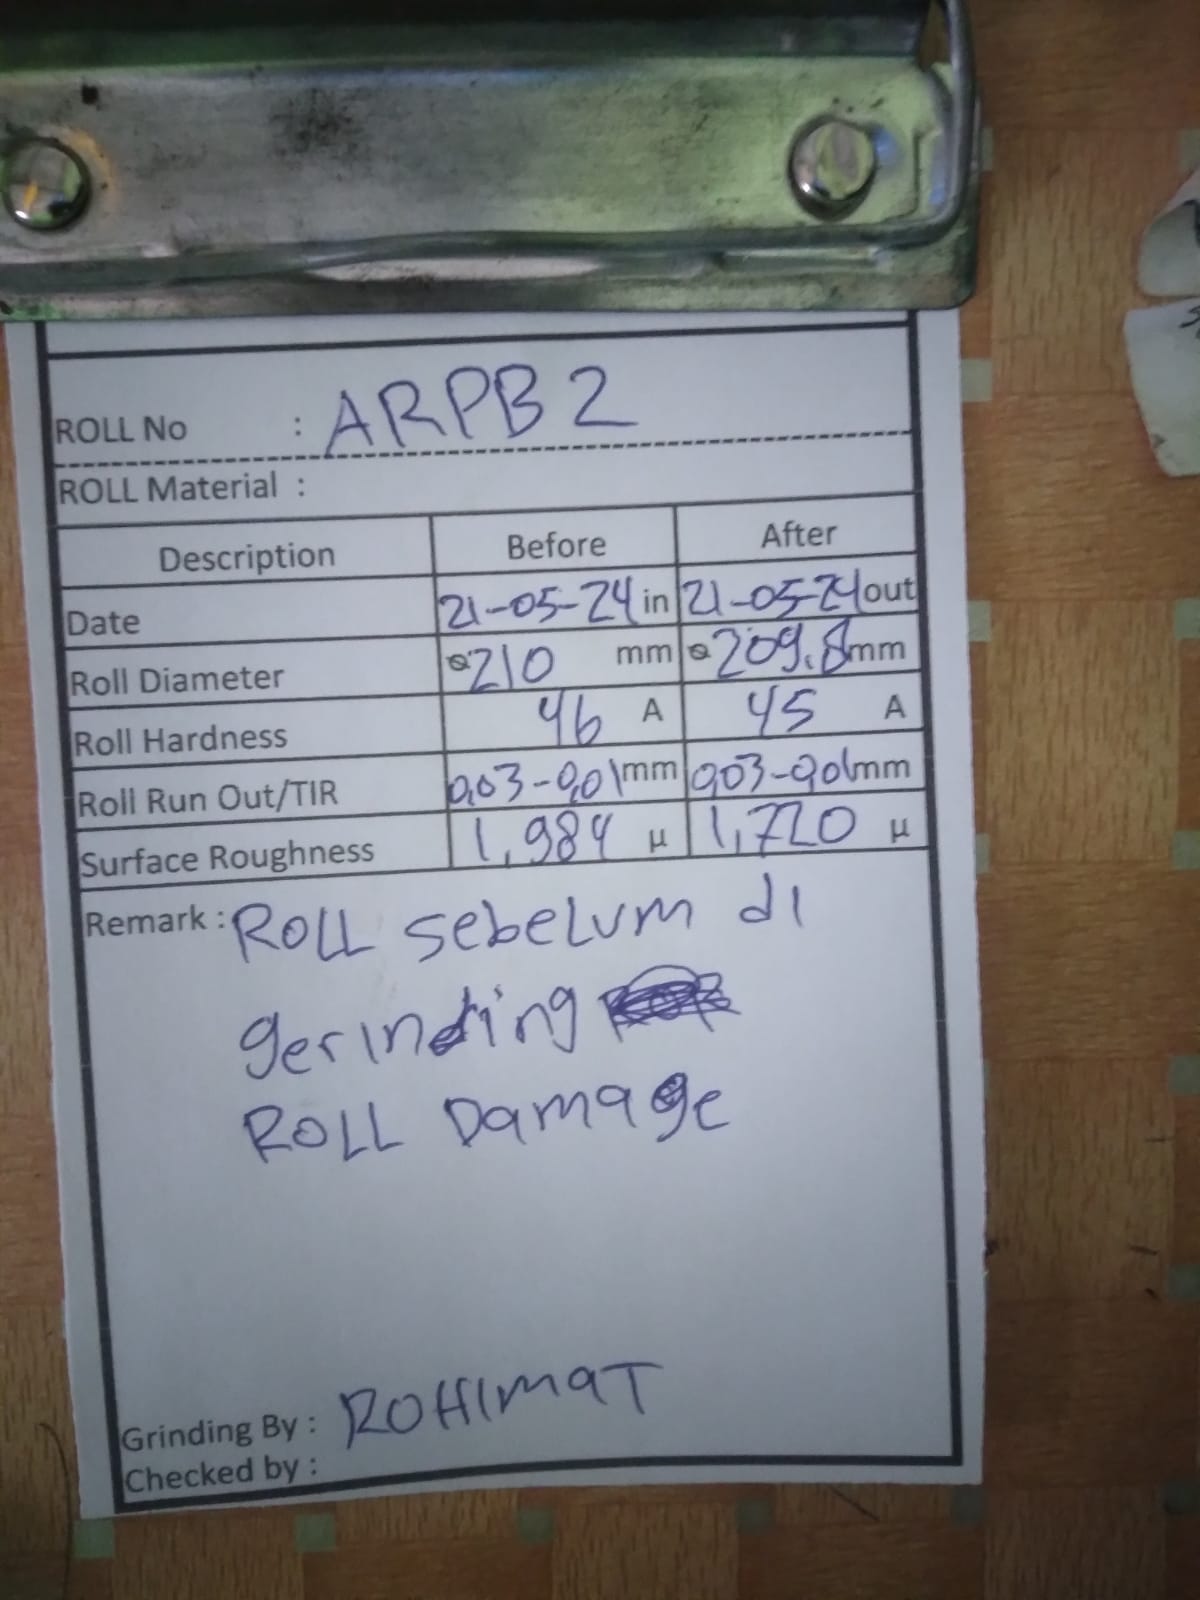 ROLL No : ARPB 2
ROLL Material :
Description Before After
Date 21-05-24 in 21-05-24 out
Roll Diameter ⌀210 mm ⌀209.8 mm
Roll Hardness 46 A 45 A
Roll Run Out/TIR 0,03-0,01 mm 0,03-0,01 mm
Surface Roughness 1,984 µ 1,720 µ
Remark : ROLL sebelum di
gerinding
ROLL Damage
Grinding By : ROHIMAT
Checked by :